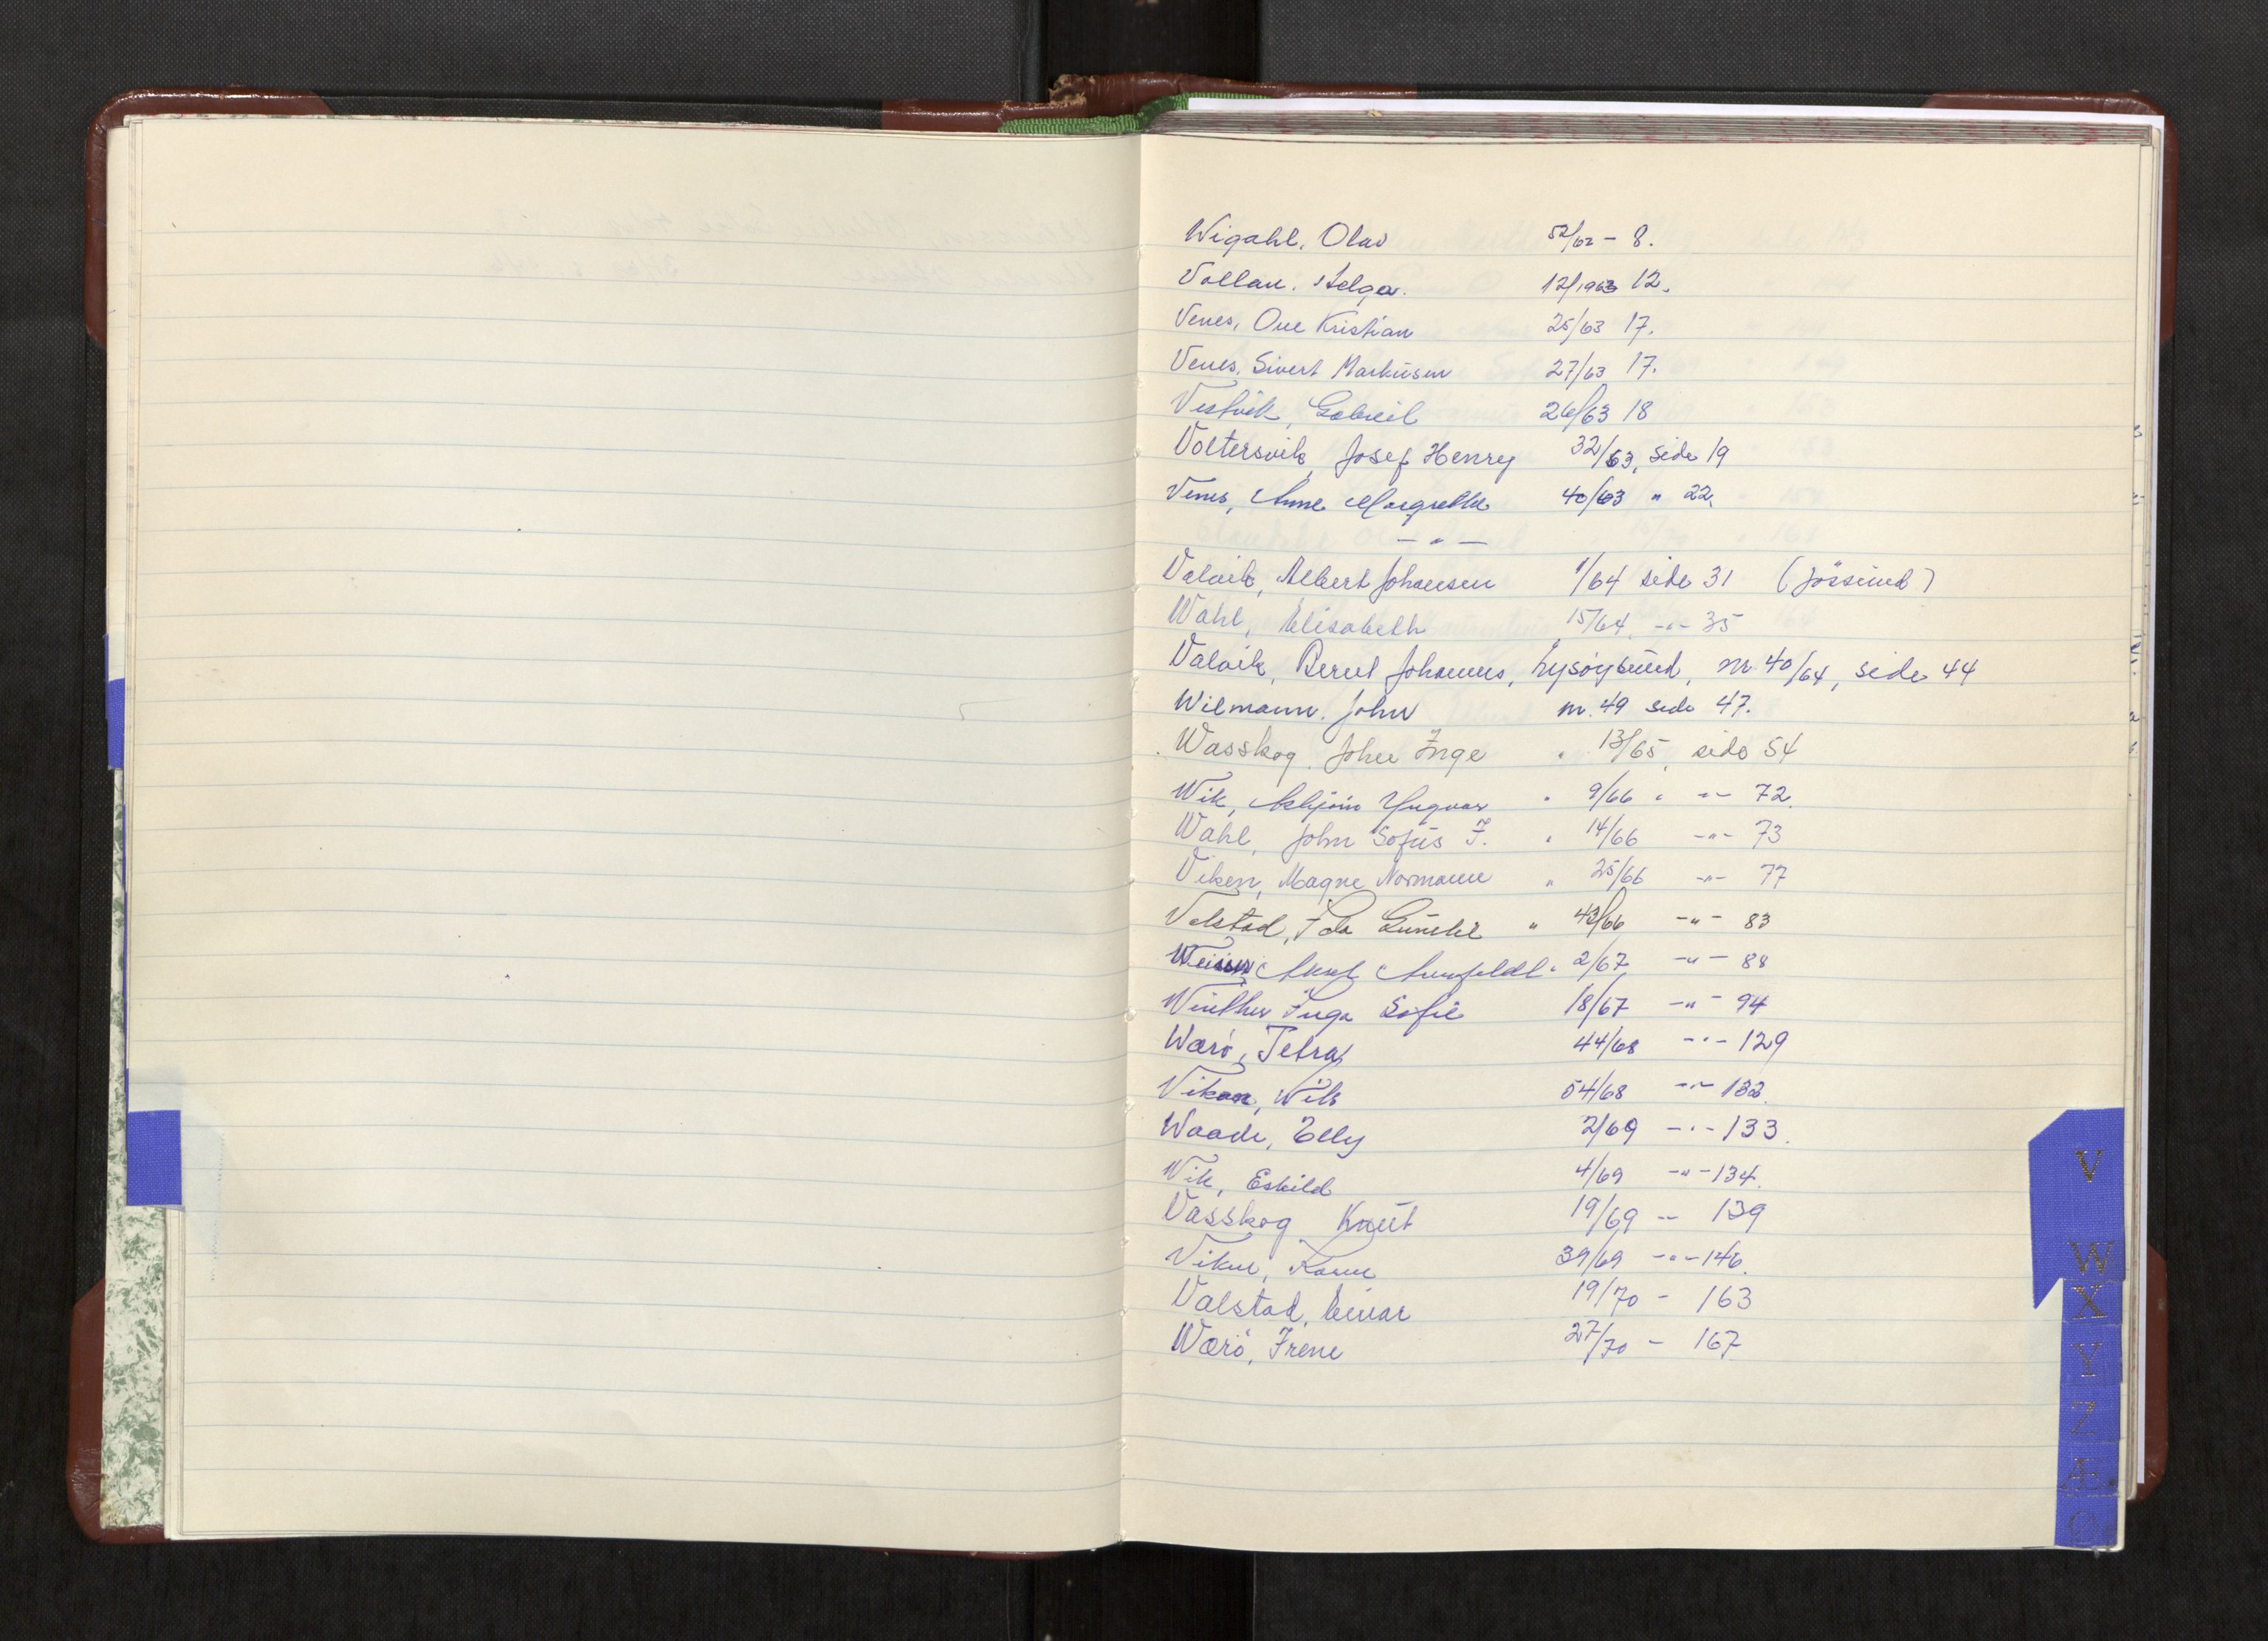 Wigahl, Olav 52/62 - 8.
Vollan, Helga. 12/1963 12.
Venes, Ove Kristian 25/63 17.
Venes, Sivert Markusen 27/63 17.
Vestvik, Gabriel 26/63 18
Voltersvik, Josef Henry 32/63, side 19
Venes, Anne Margrethe 40/63 " 22.
— " —
Valvik, Albert Johansen 1/64 side 31 (Jössund)
Wahl, Elisabeth 15/64 -"- 35
Valvik, Bernt Johannes, Lysøysund, nr 40/64, side 44
Wilmann, John nr. 49 side 47.
Wasskog, John Inge " 13/65, side 54
Wik, Asbjørn Yngvar " 9/66 " -"- 72.
Wahl, John Sofus J. " 14/66 -"- 73
Viken, Magne Normann " 25/66 -"- 77
Valstad, Ida Gunelie " 43/66 -"- 83
Aksel 2/67 -"- 88
Winther Inga Sofie 18/67 -"- 94
Wærø, Petra 44/68 -"- 129
Vikan, Nils 54/68 -"- 132.
Waade, Elly 2/69 -"- 133.
Wik, Eskild 4/69 -"- 134.
Vasskog Knut 19/69 -- 139
Viken, Karen 39/69 -"- 146.
Valstad, Einar 19/70 - 163
Wærø, Irene 27/70 - 167
V
W
X
Y
Z
Æ
Ø